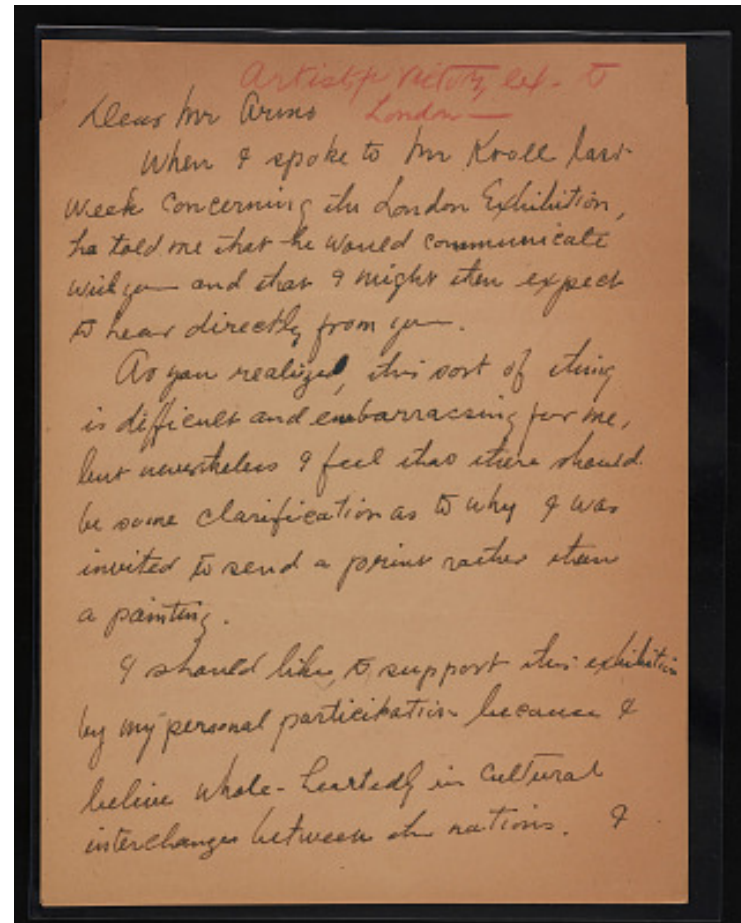 Artists for Victory ex. to
London —
Dear Mr Arms
When I spoke to Mr Kroll last
week concerning the London Exhibition,
he told me that he would communicate
with you and that I might then expect
to hear directly from you.
As you realize, this sort of thing
is difficult and embarrassing for me,
but nevertheless I feel that there should
be some clarification as to why I was
invited to send a print rather than
a painting.
I should like to support this exhibition
by my personal participation because I
believe whole-heartedly in cultural
interchanges between the nations. I